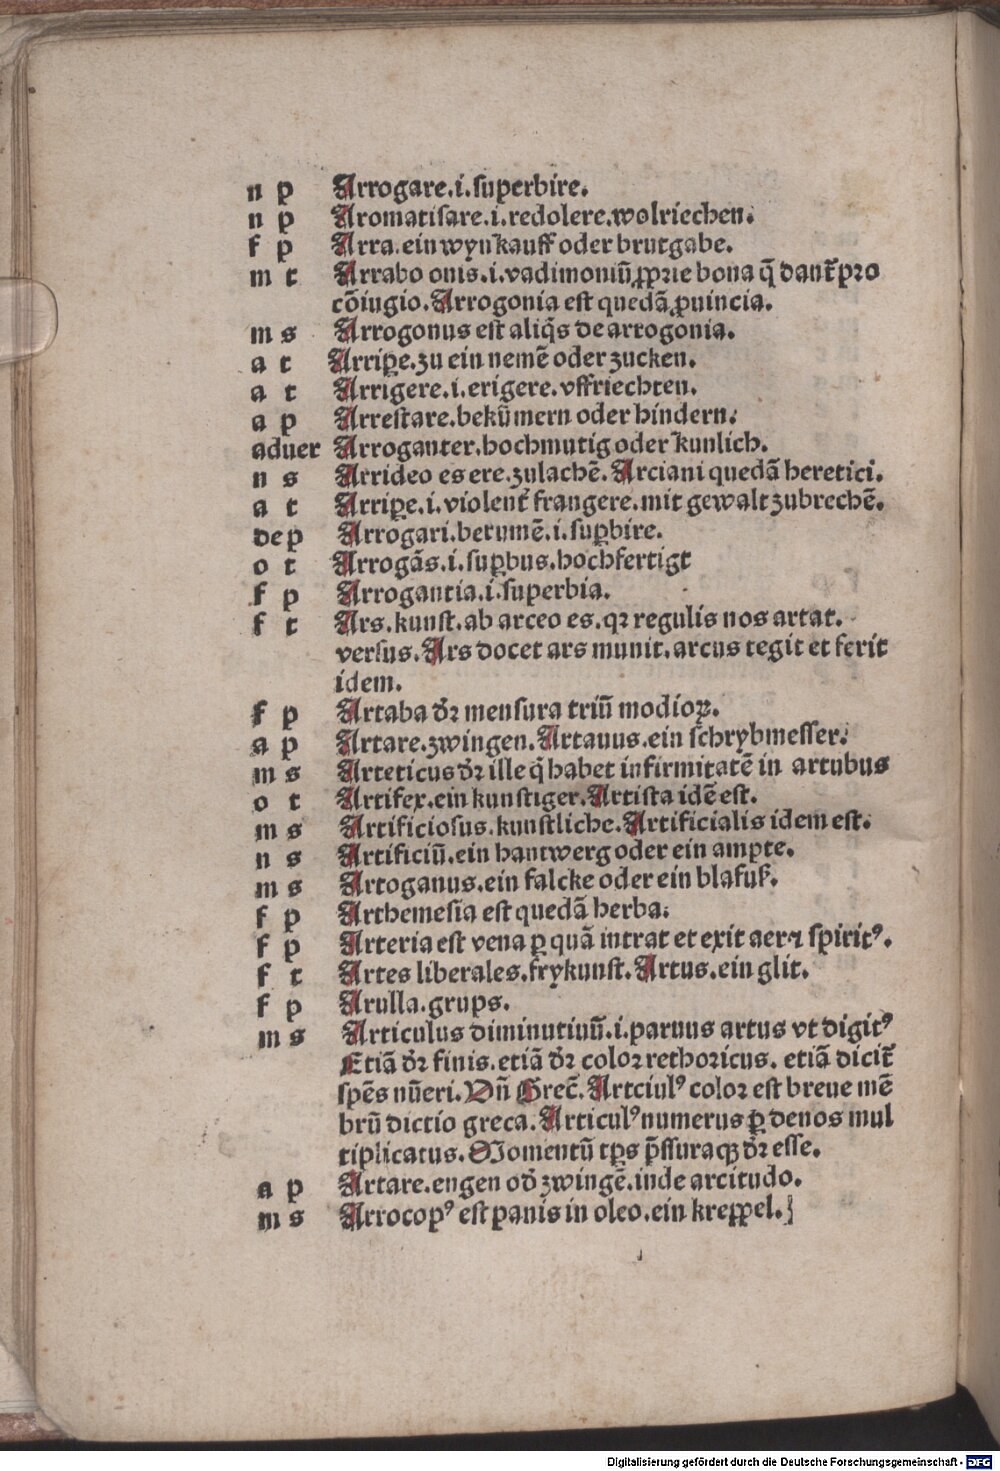 n p Arrogare.i.superbire.
n p Aromatisare.i.redolere.wolriechen.
f p Arra.ein wynkauff oder brutgabe.
m t Arrabo onis.i.vadimoniū ꝓprie bona q̄ dant᷑ pro
cōiugio.Arrogonia est quedā ꝓuincia.
m s Arrogonus est aliq̇s de arrogonia.
a t Arriꝑe.zu ein nemē oder zucken.
a t Arrigere.i.erigere.vffriechten.
a p Arrestare.bekūmern oder hindern.
aduer Arroganter.hochmutig oder kunlich.
n s Arrideo es ere.zulachē.Arciani quedā heretici.
a t Arriꝑe.i.violent᷑ frangere.mit gewalt zubrechē.
de p Arrogari.berumē.i.suꝑbire.
o t Arrogās.i.suꝑbus.hochfertigt
f p Arrogantia.i.superbia.
f t Ars.kunst.ab arceo es.qꝛ regulis nos artat.
versus.Ars docet ars munit.arcus tegit et ferit
idem.
f p Artaba dꝛ̄ mensura triū modioꝝ.
a p Artare.zwingen.Artauus.ein schrybmesser.
m s Arteticus dꝛ̄ ille q̇ habet infirmitatē in artubus
o t Artifex.ein kunstiger.Artista idē est.
m s Artificiosus.kunstliche.Artificialis idem est.
n s Artificiū.ein hantwerg oder ein ampte.
m s Artoganus.ein falcke oder ein blafuß.
f p Arthemesia est quedā herba.
f p Arteria est vena ꝑ quā intrat et exit aer ⁊ spiritꝰ.
f t Artes liberales.frykunst.Artus.ein glit.
f p Arulla.grups.
m s Articulus diminutiuū.i.paruus artus vt digitꝰ
Etiā dꝛ̄ finis.etiā dꝛ̄ color rethoricus. etiā dicit᷑
spēs nūeri.Vn̄ Grec̄.Artciulꝰ color est breue mē
brū dictio greca.Articulꝰ numerus ꝑ denos mul
tiplicatus.Momentū tꝑs p̄ssuraqꝫ dꝛ̄ esse.
a p Artare.engen od̓ zwingē.inde arcitudo.
m s Arrocopꝰ est panis in oleo.ein kreppel.
Digitalisierung gefördert durch die Deutsche Forschungsgemeinschaft - DFG